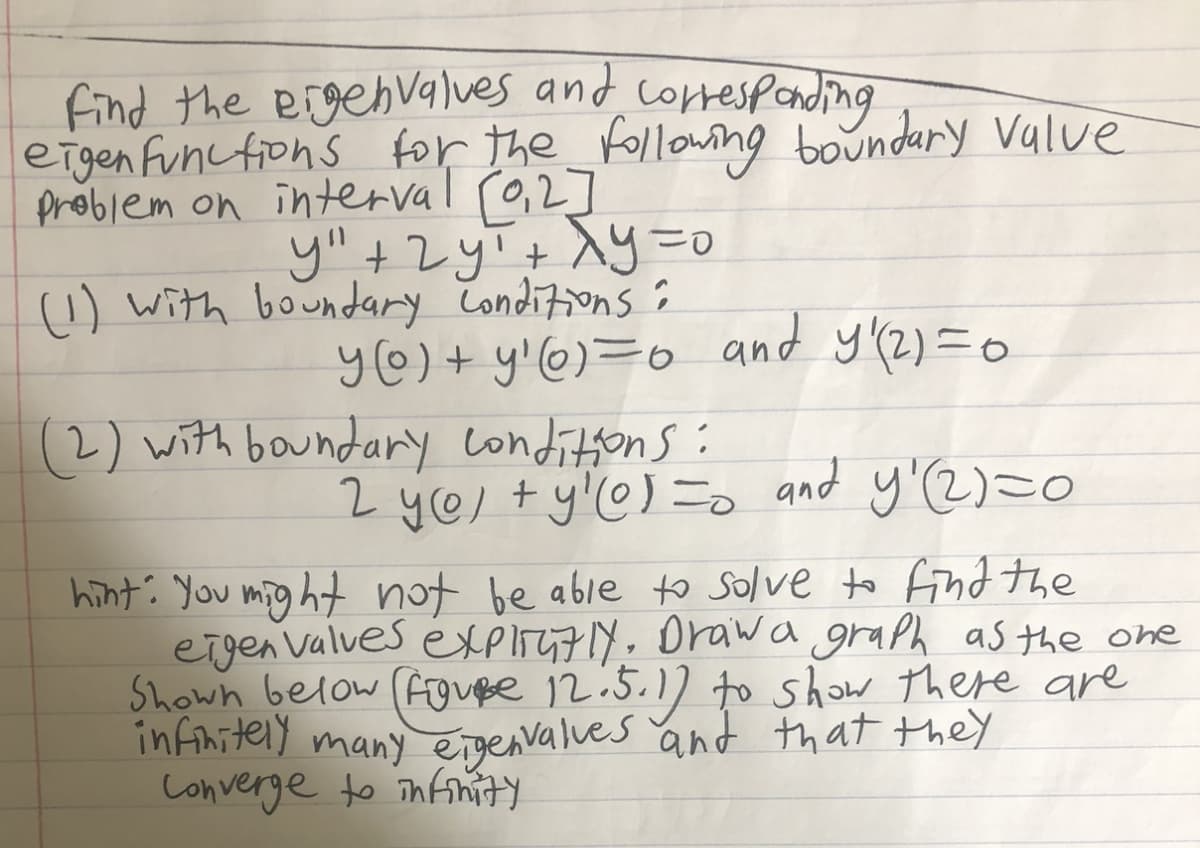 find the eigenvalues and corresponding
eigenfunctions for the following boundary value
problem on interval [0,2]
y" + 2y' + λy = 0
(1) with boundary conditions:
y(0) + y'(0) = 0 and y'(2) = 0
(2) with boundary conditions:
2 y(0) + y'(0) = 0 and y'(2) = 0
hint: You might not be able to solve to find the
eigenvalues explicitly. Draw a graph as the one
Shown below (figure 12.5.1) to show there are
infinitely many eigenvalues and that they
converge to infinity